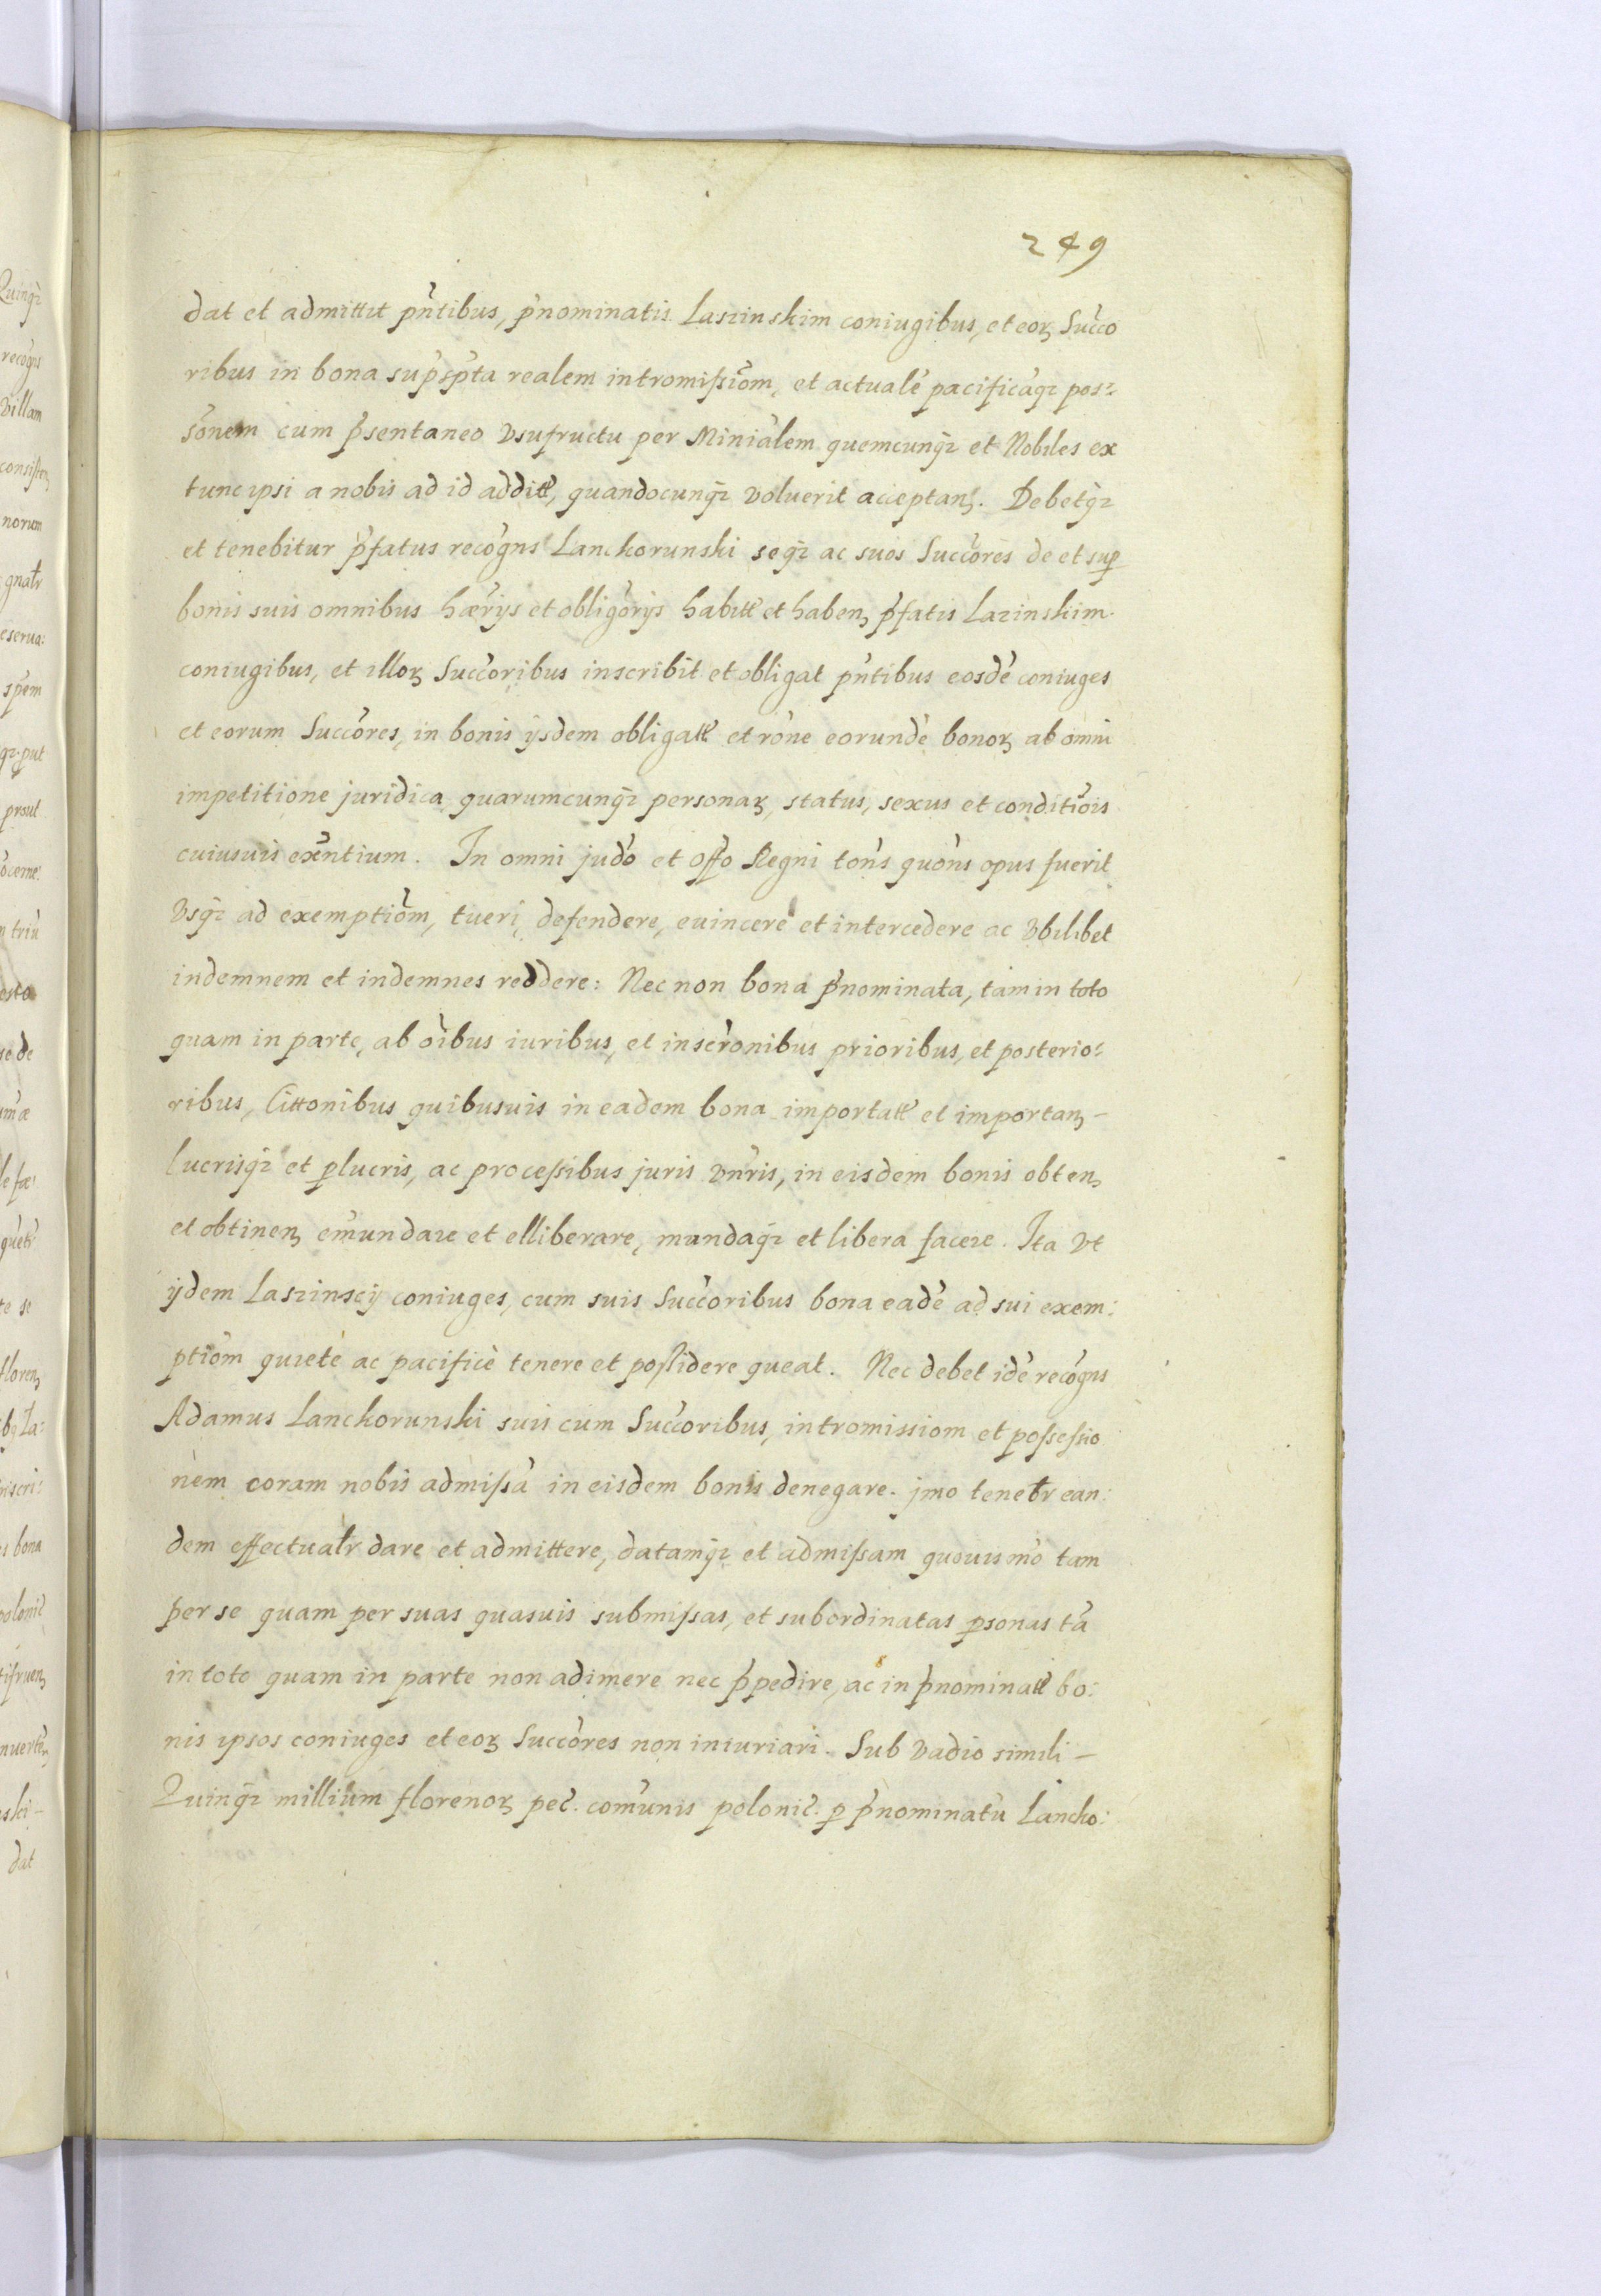 249
dat et admittit pñtibus, p̃nominatis Laszinskim coniugibus, et eorꝫ Succo
ribus in bona sup̃sp̃ta realem intromissiom̃, et actualẽ pacificãqꝫ pos:
sõnem cum p̃sentaneo Vsufructu per Miniãlem quemcunqꝫ et Nobiles ex
tunc ipsi a nobis ad id additt̃, quandocunqꝫ voluerit acceptanꝫ. Debetqꝫ
et tenebitur p̃fatus recog̃ns Lanckorunski seqꝫ ac suos Succõres de et sup̱
bonis suis omnibus hær̃ijs et oblig̃orijs habitt̃ et habenꝫ p̃fatis Lazinskim
coniugibus, et illorꝫ Succ̃oribus inscribit et obligat pñtibus eosdẽ coniuges
et eorum Succõres, in bonis ijsdem obligatt̃ et rõne eorundẽ bonorꝫ ab omni
impetitione juridica quarumcunqꝫ personarꝫ, status, sexus et conditiõis
cuiusuis exñtium. In omni judõ et offõ Regni tõns quõns opus fuerit
Vsqꝫ ad exemptiõm, tueri, defendere, euincere et intercedere ac Vbilibet
indemnem et indemnes reddere: Nec non bona p̃nominata, tam in toto
quam in parte, ab oĩbus iuribus, et inscr̃onibus prioribus, et posterio:
ribus, Cittonibus quibusuis in eadem bona importatt̃ et importanꝫ –
lucrisqꝫ et p̱lucris, ac processibus juris vñris, in eisdem bonis obtenꝫ
et obtinenꝫ em̃undare et elliberare, mundaqꝫ et libera facere. Ita Vt
ijdem Laszinscij coniuges, cum suis Succ̃oribus bona eadẽ ad sui exem:
ptiõm quietè ac pacificè tenere et possidere queat. Nec debet idẽ recog̃ns
Adamus Lanckorunski suis cum Succ̃oribus, intromissiom et possessio
nem coram nobis admissã in eisdem bonis denegare. jmo tenet̃r ean:
dem effectualr̃ dare et admittere, datamqꝫ et admissam quouis mõ tam
per se quam per suas quasuis submissas, et subordinatas p̱sonas tã
in toto quam in parte non adimere nec p̃pedire, ac in p̃nominatt̃ bo:
nis ipsos coniuges et eorꝫ Succõres non iniuriari. Sub Vadio simili –
Quinqꝫ millium florenorꝫ pec̃. com̃unis polonic̃. p̱ p̃nominatũ Lancko: